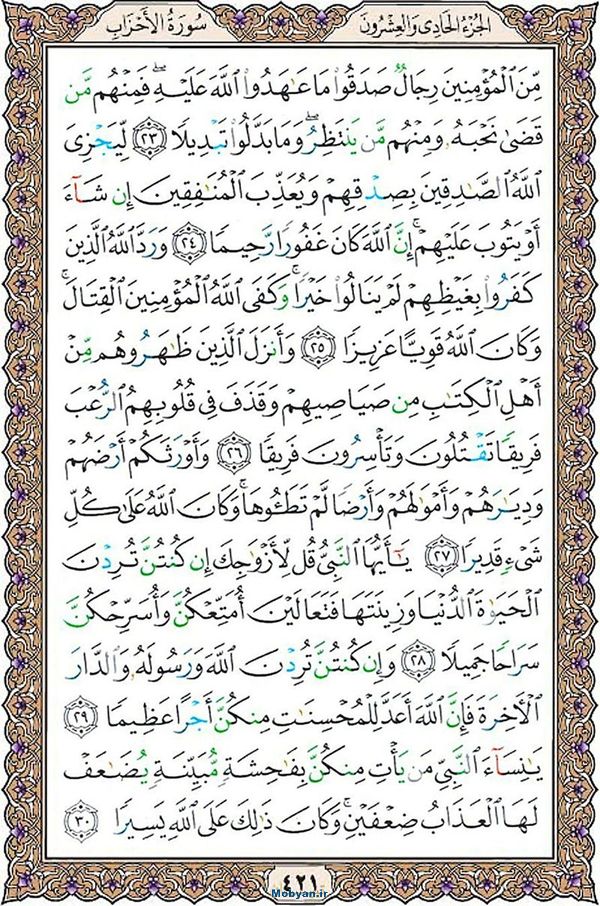 الجُزْءُ الحَادِى وَالعِشْرُونَ
سُورَةُ الأَحْزَابِ
مِّنَ ٱلْمُؤْمِنِينَ رِجَالٌ صَدَقُوا۟ مَا عَـٰهَدُوا۟ ٱللَّهَ عَلَيْهِ ۖ فَمِنْهُم مَّن
قَضَىٰ نَحْبَهُۥ وَمِنْهُم مَّن يَنتَظِرُ ۖ وَمَا بَدَّلُوا۟ تَبْدِيلًا ٢٣ لِّيَجْزِىَ
ٱللَّهُ ٱلصَّـٰدِقِينَ بِصِدْقِهِمْ وَيُعَذِّبَ ٱلْمُنَـٰفِقِينَ إِن شَآءَ
أَوْ يَتُوبَ عَلَيْهِمْ ۚ إِنَّ ٱللَّهَ كَانَ غَفُورًا رَّحِيمًا ٢٤ وَرَدَّ ٱللَّهُ ٱلَّذِينَ
كَفَرُوا۟ بِغَيْظِهِمْ لَمْ يَنَالُوا۟ خَيْرًا ۚ وَكَفَى ٱللَّهُ ٱلْمُؤْمِنِينَ ٱلْقِتَالَ ۚ
وَكَانَ ٱللَّهُ قَوِيًّا عَزِيزًا ٢٥ وَأَنزَلَ ٱلَّذِينَ ظَـٰهَرُوهُم مِّنْ
أَهْلِ ٱلْكِتَـٰبِ مِن صَيَاصِيهِمْ وَقَذَفَ فِى قُلُوبِهِمُ ٱلرُّعْبَ
فَرِيقًا تَقْتُلُونَ وَتَأْسِرُونَ فَرِيقًا ٢٦ وَأَوْرَثَكُمْ أَرْضَهُمْ
وَدِيَـٰرَهُمْ وَأَمْوَٰلَهُمْ وَأَرْضًا لَّمْ تَطَـُٔوهَا ۚ وَكَانَ ٱللَّهُ عَلَىٰ كُلِّ
شَىْءٍ قَدِيرًا ٢٧ يَـٰٓأَيُّهَا ٱلنَّبِىُّ قُل لِّأَزْوَٰجِكَ إِن كُنتُنَّ تُرِدْنَ
ٱلْحَيَوٰةَ ٱلدُّنْيَا وَزِينَتَهَا فَتَعَالَيْنَ أُمَتِّعْكُنَّ وَأُسَرِّحْكُنَّ
سَرَاحًا جَمِيلًا ٢٨ وَإِن كُنتُنَّ تُرِدْنَ ٱللَّهَ وَرَسُولَهُۥ وَٱلدَّارَ
ٱلْـَٔاخِرَةَ فَإِنَّ ٱللَّهَ أَعَدَّ لِلْمُحْسِنَـٰتِ مِنكُنَّ أَجْرًا عَظِيمًا ٢٩
يَـٰنِسَآءَ ٱلنَّبِىِّ مَن يَأْتِ مِنكُنَّ بِفَـٰحِشَةٍ مُّبَيِّنَةٍ يُضَـٰعَفْ
لَهَا ٱلْعَذَابُ ضِعْفَيْنِ ۚ وَكَانَ ذَٰلِكَ عَلَى ٱللَّهِ يَسِيرًا ٣٠
٤٢١
Mobyan.ir